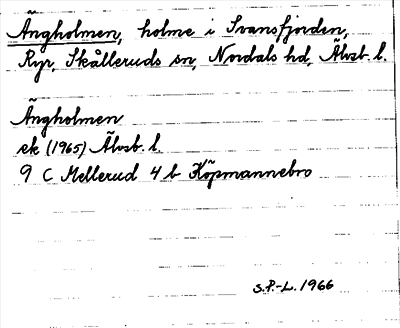 Ängholmen, holme i Svansfjorden,
Ryr, Skålleruds sn, Nordals hd, Älvsb. l.
Ängholmen
ek (1965) Älvsb. l.
9 C Mellerud 4 b Köpmannebro
S.P.-L. 1966